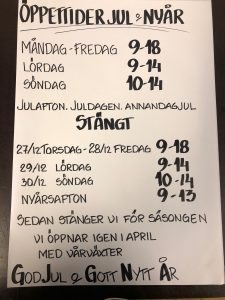 ÖPPETTIDER JUL & NYÅR
MÅNDAG - FREDAG 9-18
LÖRDAG 9-14
SÖNDAG 10-14
JULAFTON. JULDAGEN. ANNANDAGJUL
STÄNGT
27/12 TORSDAG - 28/12 FREDAG 9-18
29/12 LÖRDAG 9-14
30/12 SÖNDAG 10-14
NYÅRSAFTON 9-13
SEDAN STÄNGER VI FÖR SÄSONGEN
VI ÖPPNAR IGEN I APRIL
MED VÅRVÄXTER
GOD JUL & GOTT NYTT ÅR